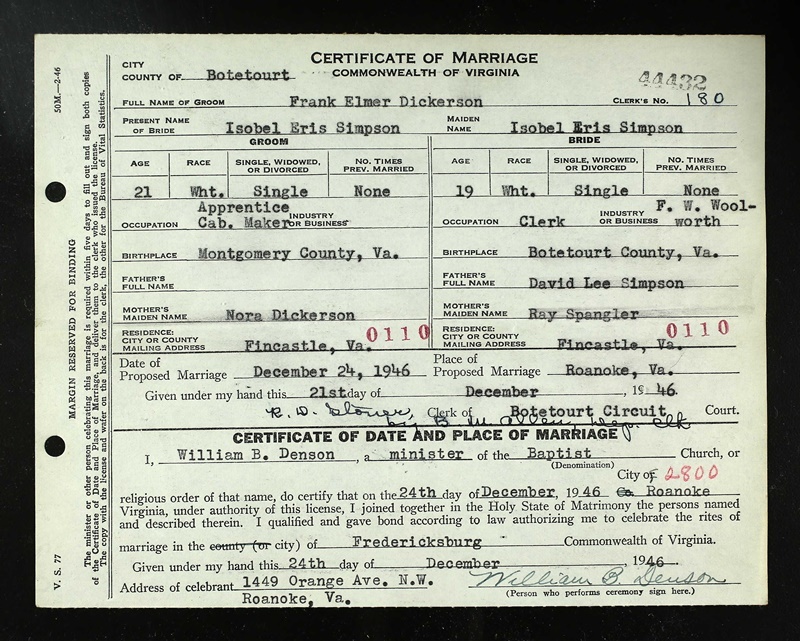 CERTIFICATE OF MARRIAGE
COMMONWEALTH OF VIRGINIA
CITY
COUNTY OF Botetourt
44432
FULL NAME OF GROOM Frank Elmer Dickerson CLERK'S NO. 180
PRESENT NAME OF BRIDE Isobel Eris Simpson MAIDEN NAME Isobel Eris Simpson
GROOM BRIDE
AGE RACE SINGLE, WIDOWED, OR DIVORCED NO. TIMES PREV. MARRIED AGE RACE SINGLE, WIDOWED, OR DIVORCED NO. TIMES PREV. MARRIED
21 Wht. Single None 19 Wht. Single None
OCCUPATION Apprentice Cab. Maker INDUSTRY OR BUSINESS OCCUPATION Clerk INDUSTRY OR BUSINESS F. W. Wool-worth
BIRTHPLACE Montgomery County, Va. BIRTHPLACE Botetourt County, Va.
FATHER'S FULL NAME FATHER'S FULL NAME David Lee Simpson
MOTHER'S MAIDEN NAME Nora Dickerson MOTHER'S MAIDEN NAME Ray Spangler
RESIDENCE: CITY OR COUNTY MAILING ADDRESS Fincastle, Va. 0110 RESIDENCE: CITY OR COUNTY MAILING ADDRESS Fincastle, Va. 0110
Date of Proposed Marriage December 24, 1946 Place of Proposed Marriage Roanoke, Va.
Given under my hand this 21st day of December, 19 46.
Clerk of Botetourt Circuit Court.
CERTIFICATE OF DATE AND PLACE OF MARRIAGE
I, William B. Denson, a minister of the Baptist Church, or
(Denomination)
City of 2800
religious order of that name, do certify that on the 24th day of December, 1946 Co. Roanoke
Virginia, under authority of this license, I joined together in the Holy State of Matrimony the persons named
and described therein. I qualified and gave bond according to law authorizing me to celebrate the rites of
marriage in the county (or city) of Fredericksburg Commonwealth of Virginia.
Given under my hand this 24th day of December, 1946
Address of celebrant 1449 Orange Ave. N.W. William B. Denson
Roanoke, Va. (Person who performs ceremony sign here.)
V. S. 77
50M.—2-46
MARGIN RESERVED FOR BINDING
The minister or other person celebrating this marriage is required within five days to fill out and sign both copies
of the Certificate of Date and Place of Marriage, and deliver them to the clerk who issued the license.
The copy with the license and wafer on the back is for the clerk, the other for the Bureau of Vital Statistics.